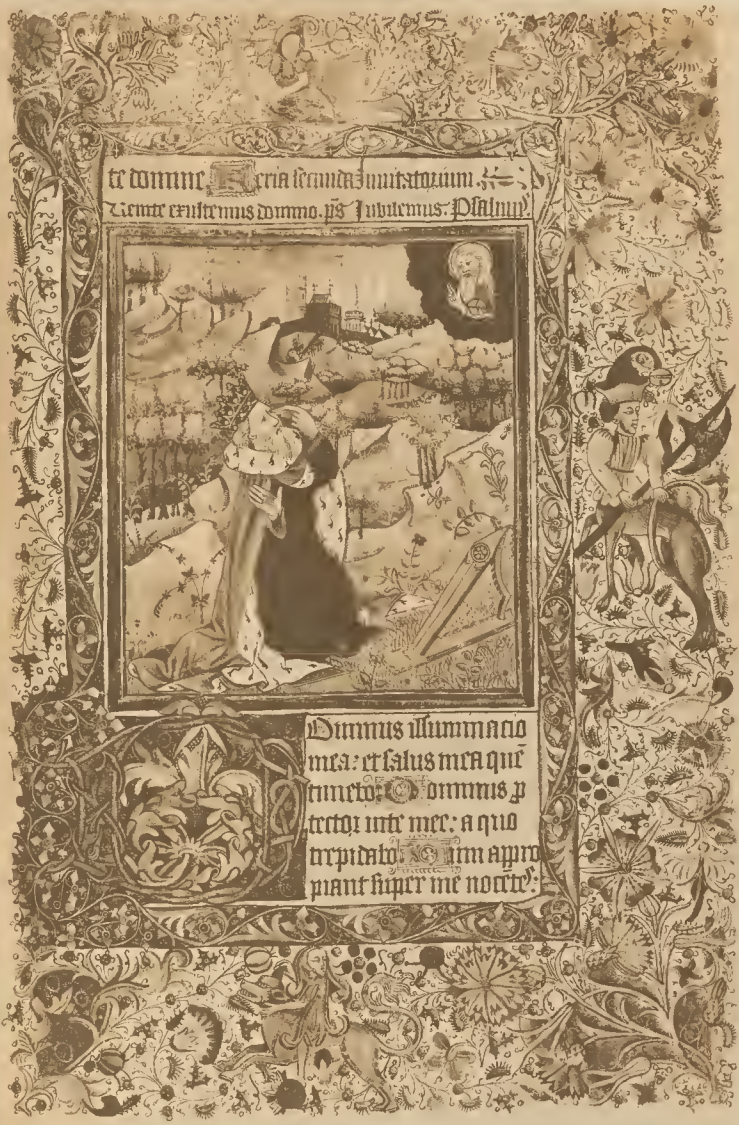 te domine Feria secunda Inuitatorium.
Uenite exultemus domino. ps̄ Iubilemus. Psalmus
Ominus illuminacio
mea: et salus mea quē
timebo: Dominus ꝓ
tector uite mee: a quo
trepidabo Dum appro
piant super me nocētes: